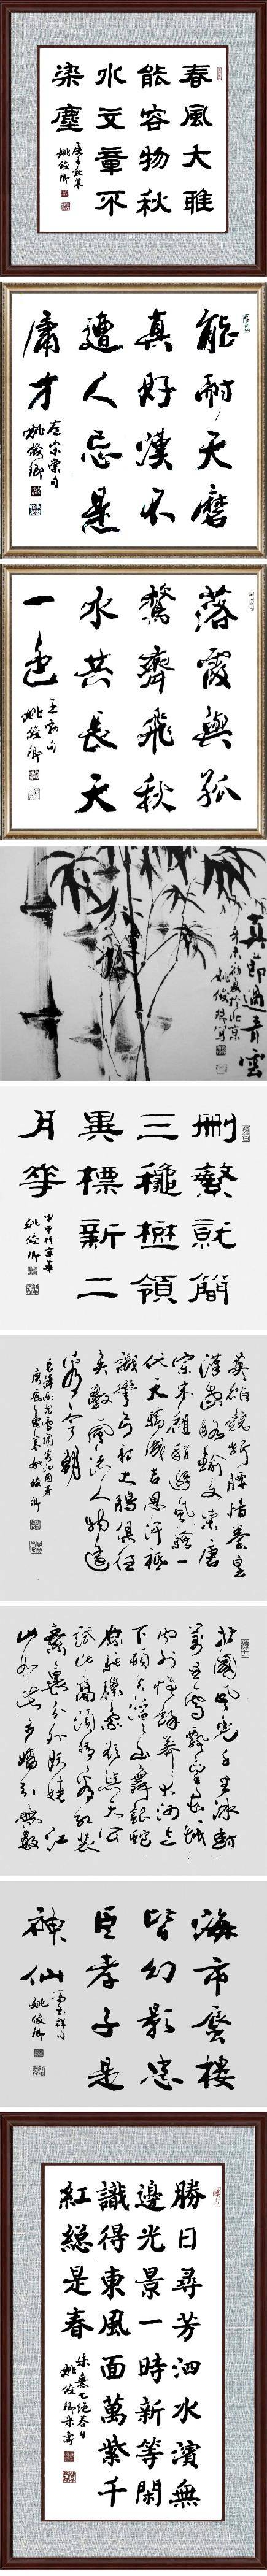 春風大雅
能容物秋
水文章不
染塵
庚子秋暮
姚俊卿
能耐天磨
真好漢不
遭人忌是
庸才
左宗棠句
姚俊卿
落霞與孤
鶩齊飛秋
水共長天
一色
王勃句
姚俊卿
真節過青雲
姚俊卿寫
刪繁就簡
三秋樹領
異標新二
月花
姚俊卿
英雄競折腰惜秦皇
漢武略輸文采唐
宗宋祖稍遜風騷一
代天驕成吉思汗祗
識彎弓射大鵰俱往
矣數風流人物還
看今朝
姚俊卿
北國風光千里冰封
萬里雪飄望長城
內外惟餘莽莽大河上
下頓失滔滔山舞銀蛇
原馳蠟象欲與天公
試比高須晴日看紅裝
素裹分外妖嬈江
山如此多嬌引無數
海市蜃樓
皆幻影忠
臣孝子是
神仙
馮玉祥句
姚俊卿
勝日尋芳泗水濱無
邊光景一時新等閑
識得東風面萬紫千
紅總是春
朱熹七絕春日
姚俊卿書